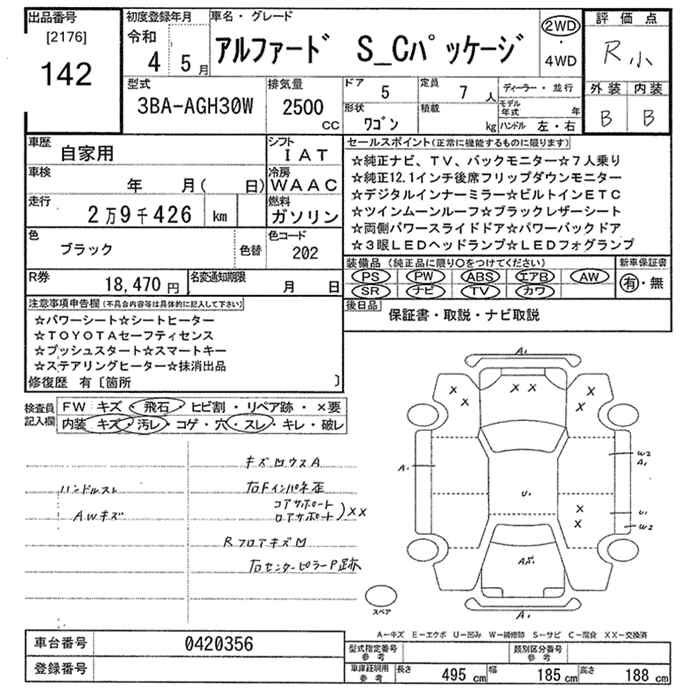 出品番号
[2176]
142
初度登録年月
令和
4 5月
車名・グレード
アルファード S_Cパッケージ
2WD
・
4WD
評価点
R小
外装 内装
B B
型式
3BA-AGH30W
排気量
2500
CC
ドア 5
定員 7 人
形状 ワゴン
積載 kg
ディーラー・並行
モデル年式 年
ハンドル 左・右
車歴
自家用
シフト
IAT
車検
年 月( 日)
冷房
WAAC
走行
2万9千426 km
燃料
ガソリン
色
ブラック
色替
色コード
202
R券
18,470 円
名変通知期限
月 日
セールスポイント(正常に機能するものに限ります)
☆純正ナビ、TV、バックモニター☆7人乗り
☆純正12.1インチ後席フリップダウンモニター
☆デジタルインナーミラー☆ビルトインETC
☆ツインムーンルーフ☆ブラックレザーシート
☆両側パワースライドドア☆パワーバックドア
☆3眼LEDヘッドランプ☆LEDフォグランプ
装備品(純正品に限り○をつけてください)
PS PW ABS エアB AW
SR ナビ TV カワ
新車保証書
有・無
後日品
保証書・取説・ナビ取説
注意事項申告欄(不具合内容等は具体的に記入して下さい)
☆パワーシート☆シートヒーター
☆TOYOTAセーフティセンス
☆プッシュスタート☆スマートキー
☆ステアリングヒーター☆抹消出品
修復歴 有〔箇所 〕
検査員記入欄
FW キズ・飛石・ヒビ割・リペア跡・×要
内装 キズ・汚レ・コゲ・穴・スレ・キレ・破レ
キズ凹ウスA
ハンドルスレ
右Fインパネ歪
コアサポート
ロアサポート
)××
AWキズ
Rフロアキズ凹
右センターピラーP跡
A1
× ×
× ×
× ×
A1
W2
A1
U1
×
×
U1
W2
A1
スペア
A-キズ E-エクボ U-凹み W-補修跡 S-サビ C-腐食 XX-交換済
車台番号
0420356
登録番号
型式指定番号
参考
類別区分番号
参考
車庫証明用
参考
長さ 495 cm
幅 185 cm
高さ 188 cm